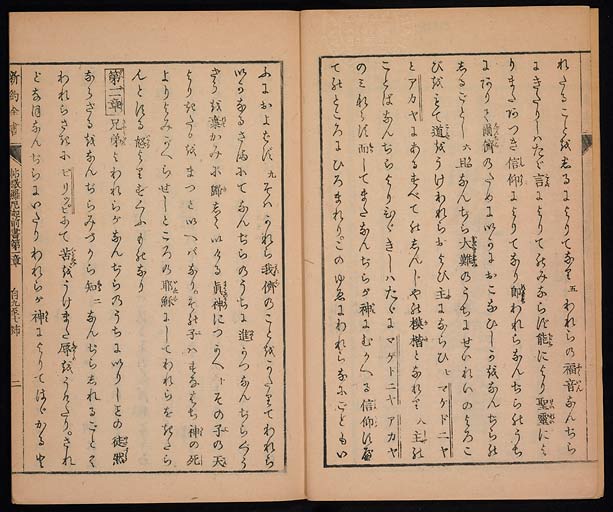 れたることを志るによりてなり 五 われらの福音なんぢら
にきたりしハたゞ言によりてのみならず能により聖靈によ
りまたあつき信仰によりてなり即われらなんぢらのうち
にありて爾儕のためにいかにおこなひしかをなんぢらの
志るごとし 六 且なんぢら大難のうちにせいれいのよろこ
びをもて道をうけわれらおよび主にならひ 七 マケドニヤ
とアカヤにあるすべての志んじやの模楷となれり 八 主の
ことばなんぢらよりひゞきしハたゞにマケドニヤ アカヤ
のミならず而してまたなんぢらが神にむかへる信仰
てのところにひろまれりこのゆゑにわれらなにごともい
ふにおよばず 九 そハかれら我儕のことをかたりてわれら
いかなるさまにてなんぢらのうちに進かつなんぢらぐう
ざうを棄かみに歸して眞神につかへ 十 その子の天
よりきたるをまつといへバなりその子ハすなはち神の死
よりよみがへらせしところの耶穌にしてわれらをきたら
んとする怒よりすくふものなり
第二章 兄弟よわれらがなんぢらのうちにいりしことの徒然
ならざるをなんぢらみづから知 二 なんぢら志れるごとく
われらさきにピリッピにて苦をうけまた辱をうけたりされ
どなほなんぢらにいたりわれらが神によりてはゞからず
新約全書 前書第一章 二